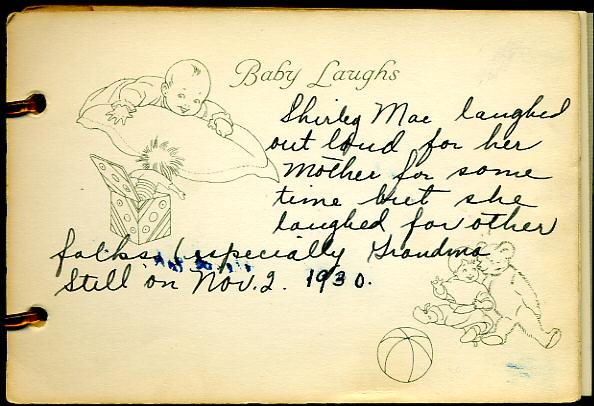 Baby Laughs
Shirley Mae laughed
out loud for her
Mother for some
time but she
laughed for other
folks, (especially Grandma
Still on Nov. 2. 1930.